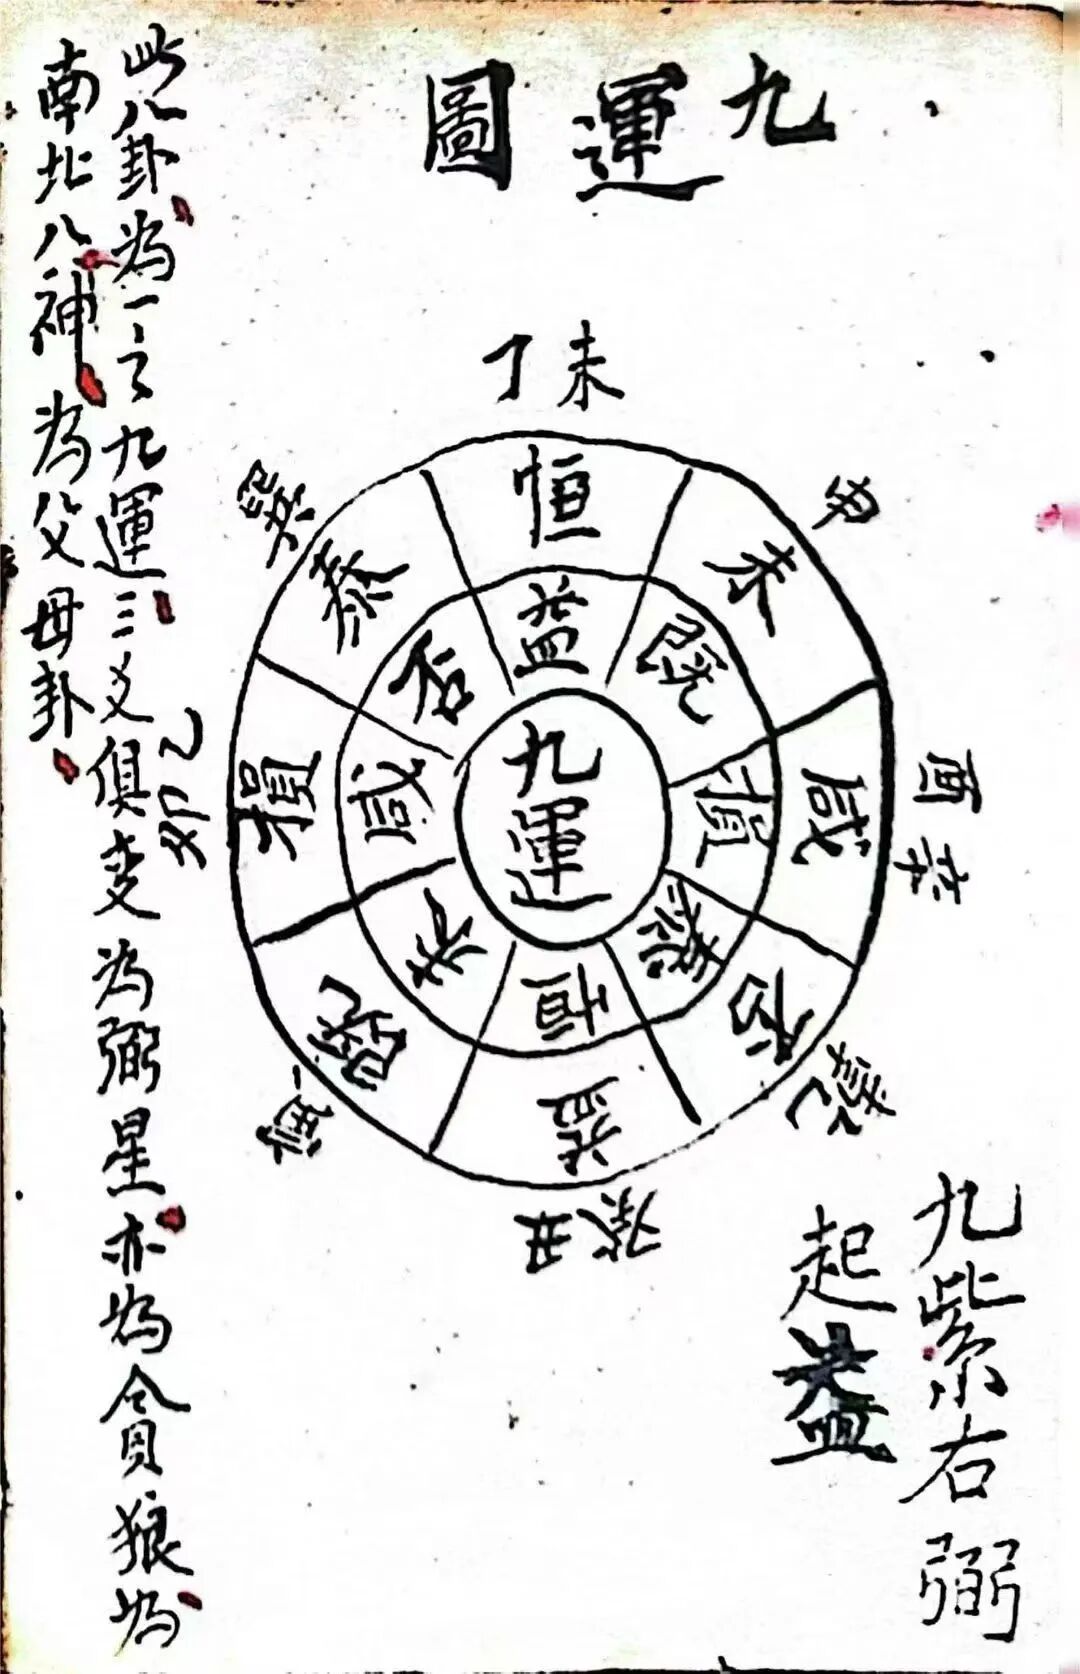 九運圖
未丁
恒
未
咸
否
益
既
損
泰
益
既
損
泰
恒
未
咸
否
九運
酉辛
乾
癸丑
乙卯
巽
九紫右弼
起益
此八卦為一之九運三爻俱变為弼星亦為貪狼為
南北八神為父母卦